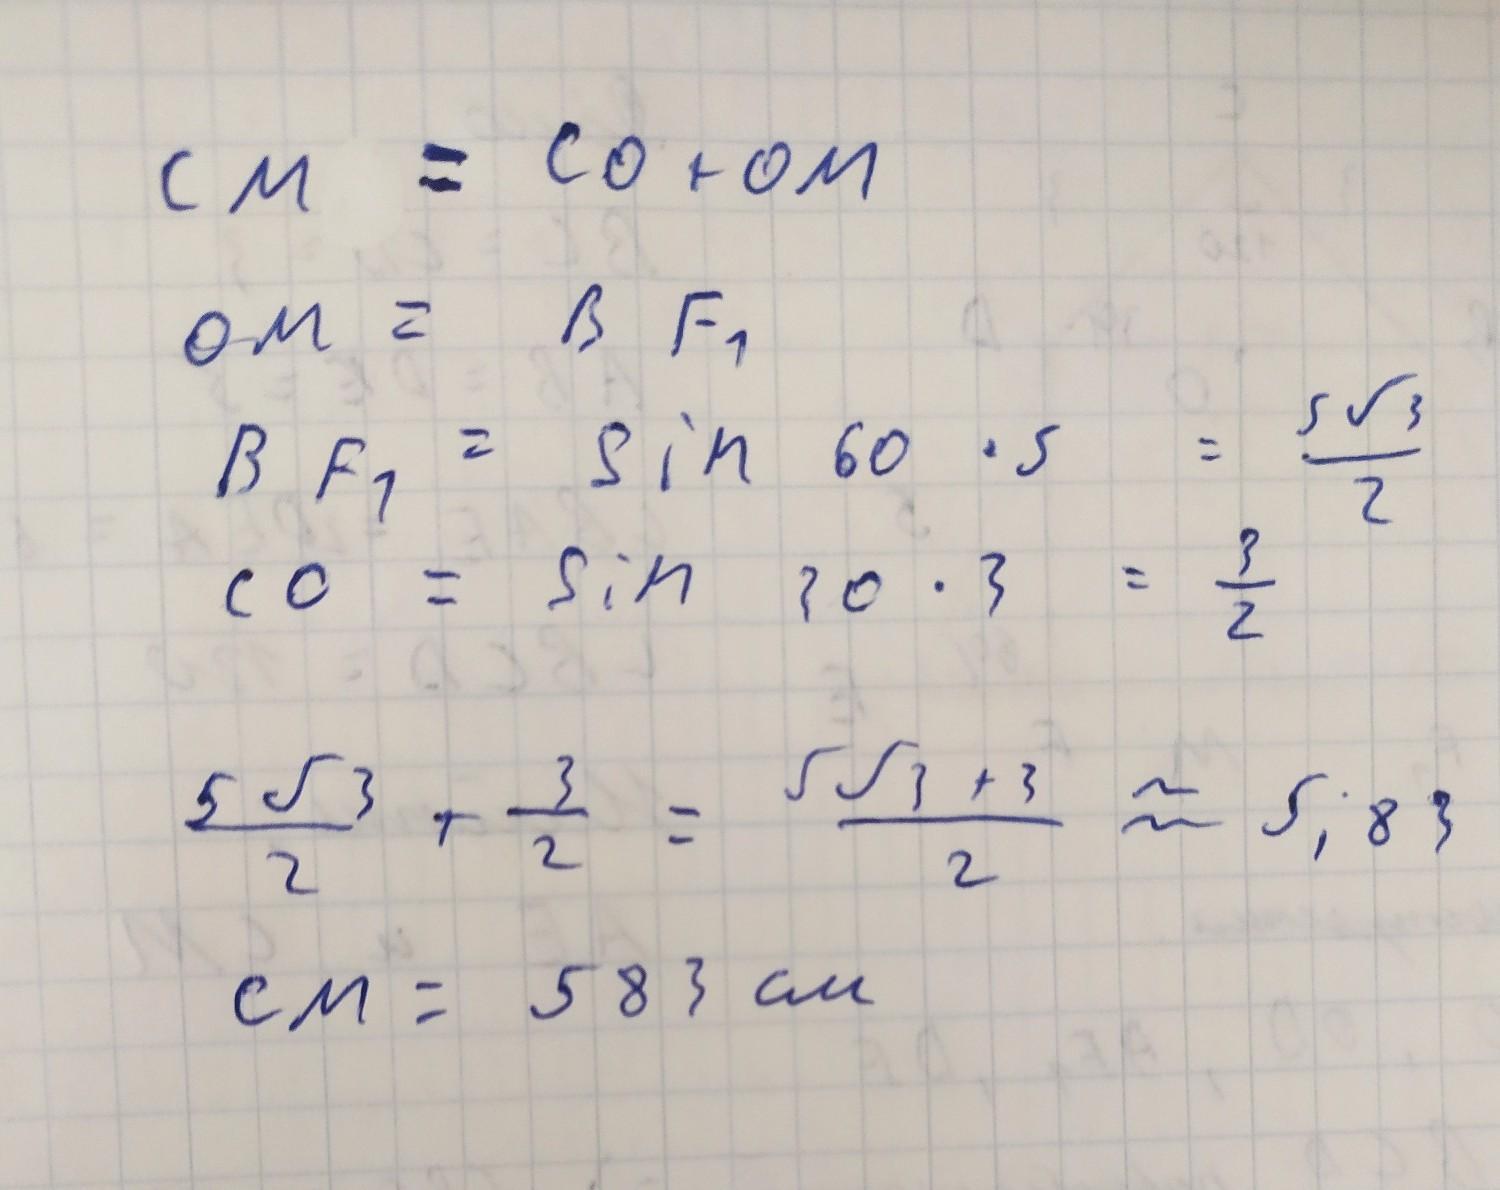 CM = CO + OM
OM = BF₁
BF₁ = sin 60 · 5 = 5√3/2
CO = sin 30 · 3 = 3/2
5√3/2 + 3/2 = (5√3 + 3)/2 ≈ 5,83
CM = 583 см